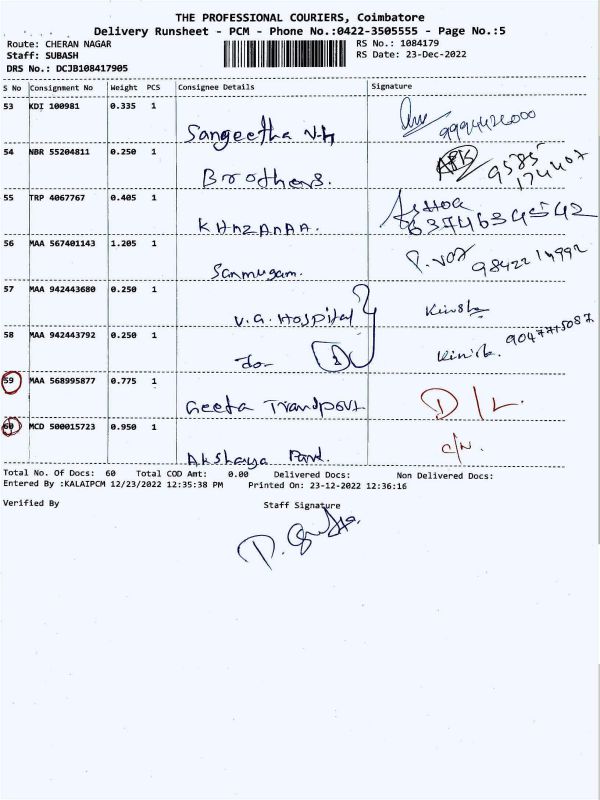 THE PROFESSIONAL COURIERS, Coimbatore
Delivery Runsheet - PCM - Phone No.:0422-3505555 - Page No.:5
Route: CHERAN NAGAR RS No.: 1084179
Staff: SUBASH RS Date: 23-Dec-2022
DRS No.: DCJB108417905
S No Consignment No Weight PCS Consignee Details Signature
53 KDI 100981 0.335 1
Sangeetha V.H 9994426000
54 NBR 55204811 0.250 1
Brothers. 9585
174407
55 TRP 4067767 0.405 1 Ashoa
KHAZANAA. 6374634542
56 MAA 567401143 1.205 1
Sanmugam. 9842214992
57 MAA 942443680 0.250 1
V.G. Hospital
58 MAA 942443792 0.250 1
do- 2 9047715087
59 MAA 568995877 0.775 1
Geeta Trandport D/L
60 MCD 500015723 0.950 1
Akshaya C/N.
Total No. Of Docs: 60 Total COD Amt: 0.00 Delivered Docs: Non Delivered Docs:
Entered By :KALAIPCM 12/23/2022 12:35:38 PM Printed On: 23-12-2022 12:36:16
Verified By Staff Signature